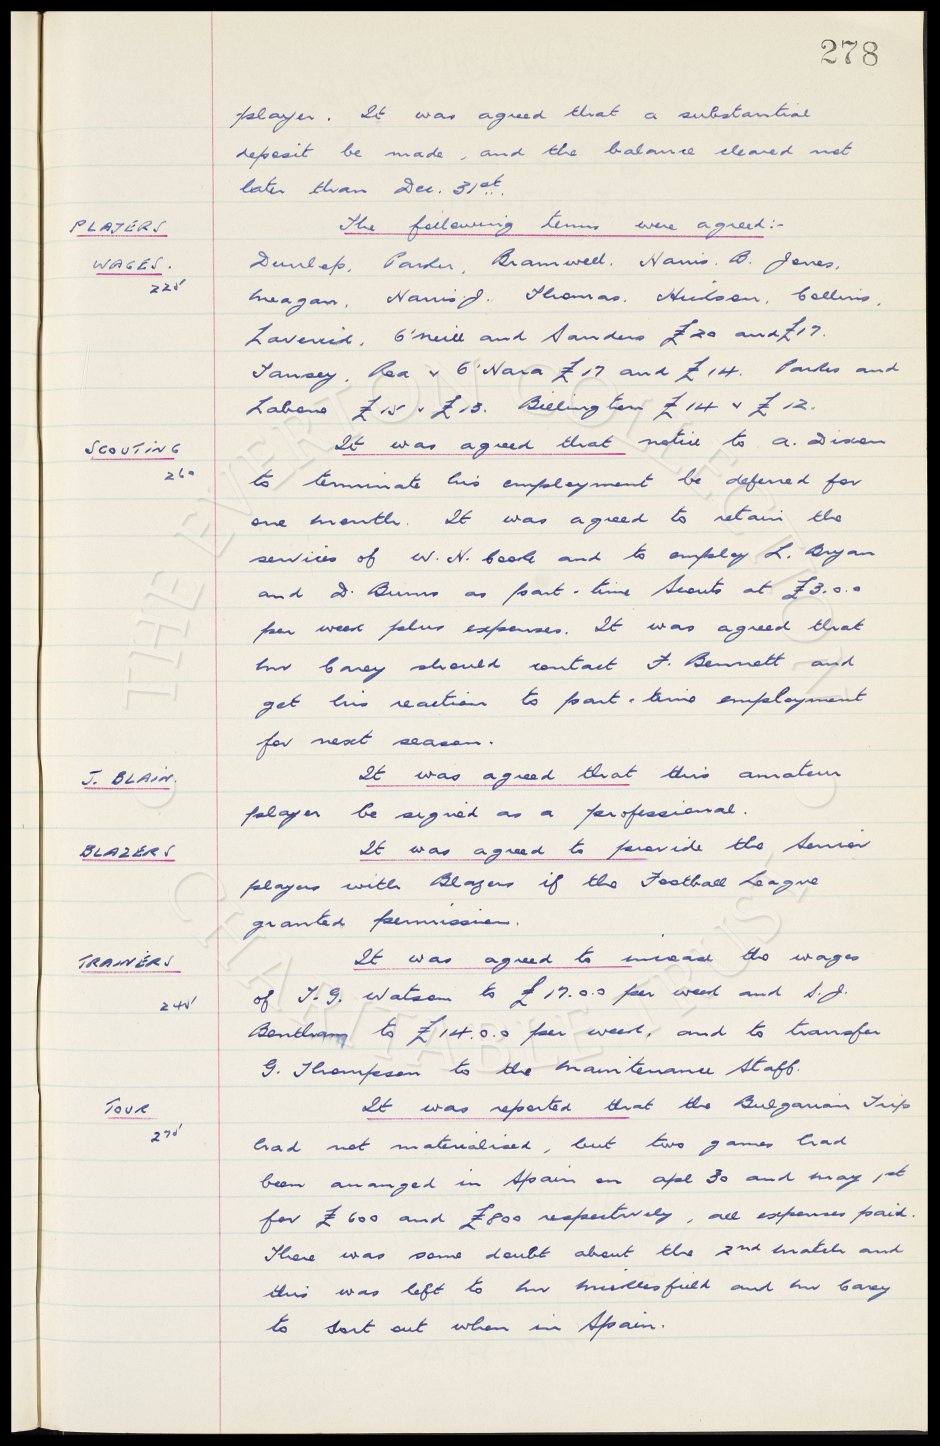 278
player. It was agreed that a substantial
deposit be made, and the balance cleared not
later than Dec. 31st.
PLAYERS
WAGES.
225
The following terms were agreed:-
Dunlop, Parker, Bramwell, Harris. B. Jones,
Meagan, Harris. J. Thomas, Hickson, Collins,
Laverick, O'Neill and Sanders £20 and £17.
Tansey, Rea & O'Hara £17 and £14. Parkes and
Labone £15 & £13. Billington £14 & £12.
SCOUTING
260
It was agreed that notice to A. Dixon
to terminate his employment be deferred for
one month. It was agreed to retain the
services of W. H. Cooke and to employ L. Bryan
and D. Burns as part-time Scouts at £3.0.0
per week plus expenses. It was agreed that
Mr Carey should contact F. Bennett and
get his reaction to part-time employment
for next season.
J. BLAIN.
It was agreed that this amateur
player be signed as a professional.
BLAZERS
It was agreed to provide the Senior
players with Blazers if the Football League
granted permission.
TRAINERS
245
It was agreed to increase the wages
of T. G. Watson to £17.0.0 per week and S. J.
Bentham to £14.0.0 per week, and to transfer
G. Thompson to the Maintenance Staff.
TOUR
275
It was reported that the Bulgarian Trip
had not materialised, but two games had
been arranged in Spain on Apl 30 and May 1st
for £600 and £800 respectively, all expenses paid.
There was some doubt about the 2nd match and
this was left to Mr Micklesfield and Mr Carey
to sort out when in Spain.
© THE EVERTON COLLECTION
CHARITABLE TRUST